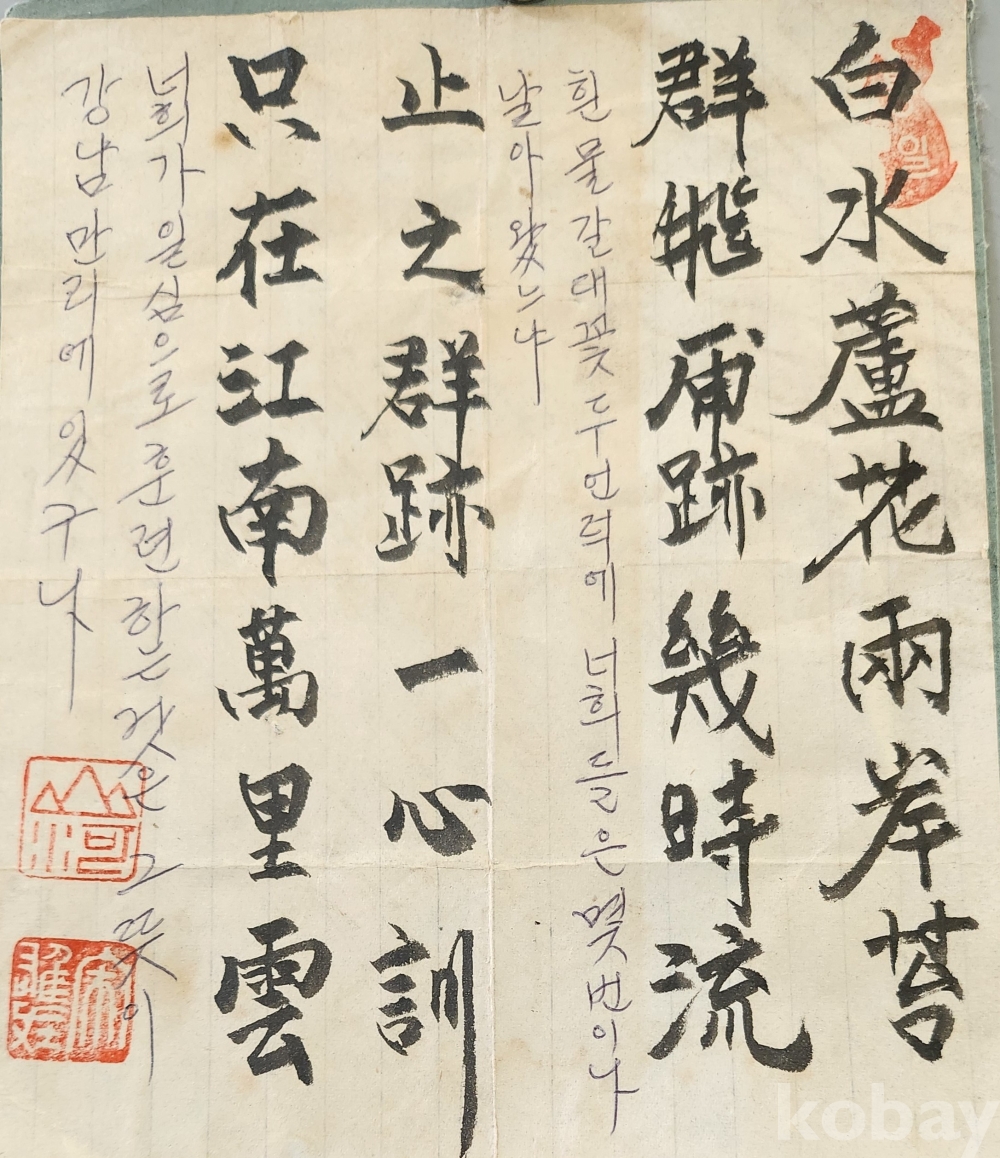 일
白水蘆花兩岸苔
群飛跡幾時流
흰물갈대꽃 두언덕에 너희들은 몇번이나
날아왔느냐
止之群跡一心訓
只在江南萬里雲
너희가 일심으로 훈련하는 것은 그 뜻이
강남만리에 있구나
山河
kobay